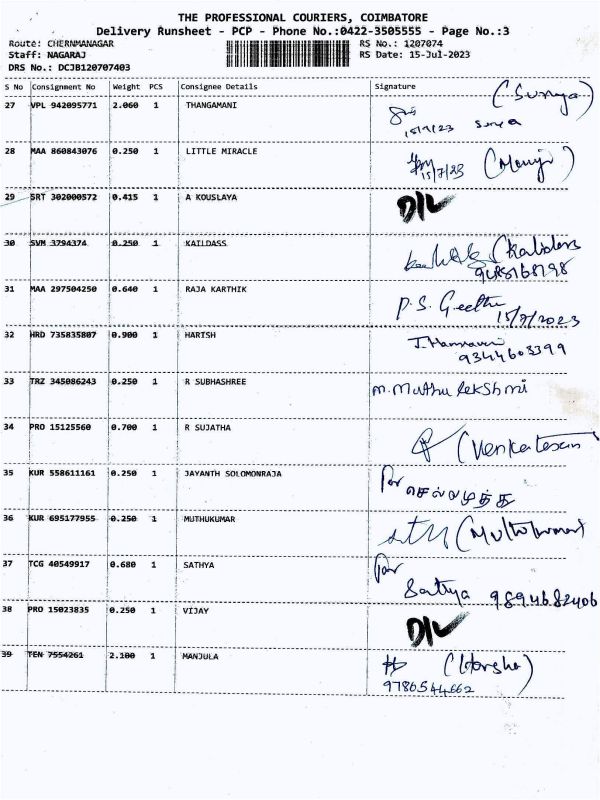 THE PROFESSIONAL COURIERS, COIMBATORE
Delivery Runsheet - PCP - Phone No.:0422-3505555 - Page No.:3
Route: CHERNMANAGAR RS No.: 1207074
Staff: NAGARAJ RS Date: 15-Jul-2023
DRS No.: DCJB120707403
S No Consignment No Weight PCS Consignee Details Signature
(Suriya)
27 VPL 942095771 2.060 1 THANGAMANI
15/7/23 Surya
28 MAA 860843076 0.250 1 LITTLE MIRACLE
15/7/23 (Manju)
29 SRT 302000572 0.415 1 A KOUSLAYA D/L
30 SVM 3794374 0.250 1 KAILDASS (Kalidass
31 MAA 297504250 0.640 1 RAJA KARTHIK P.S. Geetha
15/7/2023
32 HRD 735835807 0.900 1 HARISH
9344603399
33 TRZ 345086243 0.250 1 R SUBHASHREE M. Muthu lekshmi
34 PRO 15125560 0.700 1 R SUJATHA (Venkatesan
35 KUR 558611161 0.250 1 JAYANTH SOLOMONRAJA For
36 KUR 695177955 0.250 1 MUTHUKUMAR (Muthukumar
37 TCG 40549917 0.680 1 SATHYA For
Sathya 9894682406
38 PRO 15023835 0.250 1 VIJAY D/L
39 TEN 7554261 2.100 1 MANJULA (Harsha)
9786544662